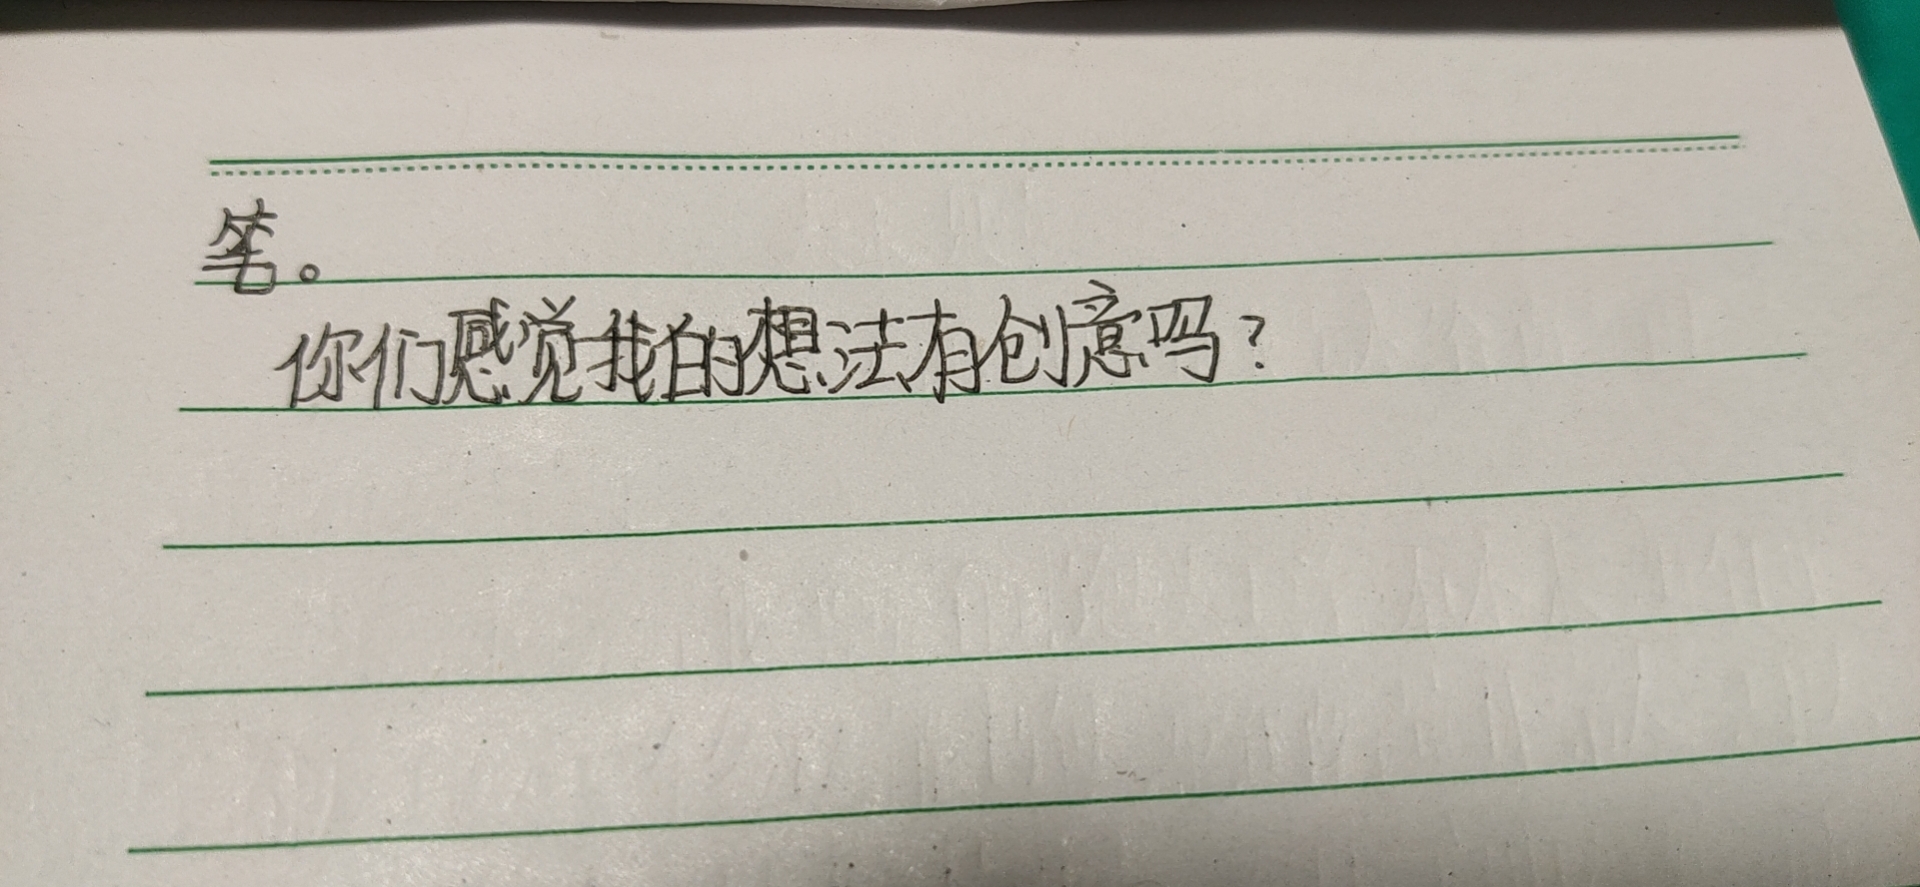 笔。
你们感觉我的想法有创意吗?